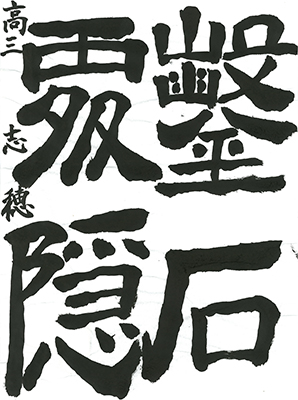 鑿石
隠
高三 志穂